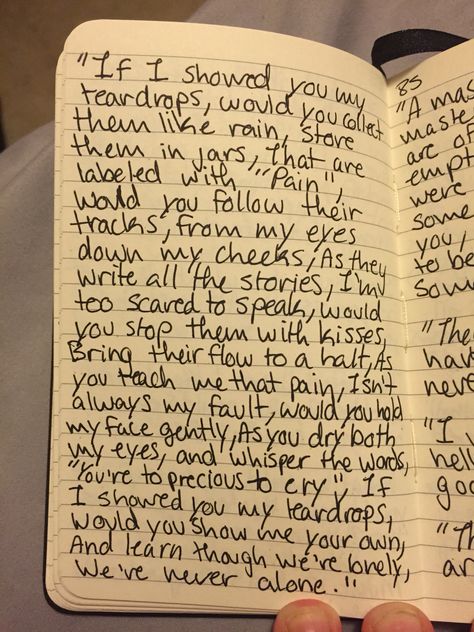 "If I showed you my
teardrops, would you collect
them like rain, store
them in jars, that are
labeled with ""Pain",
would you follow their
tracks, from my eyes
down my cheeks, As they
write all the stories, I'm
too scared to speak, would
you stop them with kisses,
Bring their flow to a halt, As
you teach me that pain, Isn't
always my fault, would you hold
my face gently, As you dry both
my eyes, and whisper the words,
"You're to precious to cry", If
I showed you my teardrops,
would you show me your own,
And learn though we're lonely,
we've never alone."
85
"A mas
maste
are of
empt
were
some
you,
to be
som
"The
hav
neve
"I
hell
goo
"Th
ar